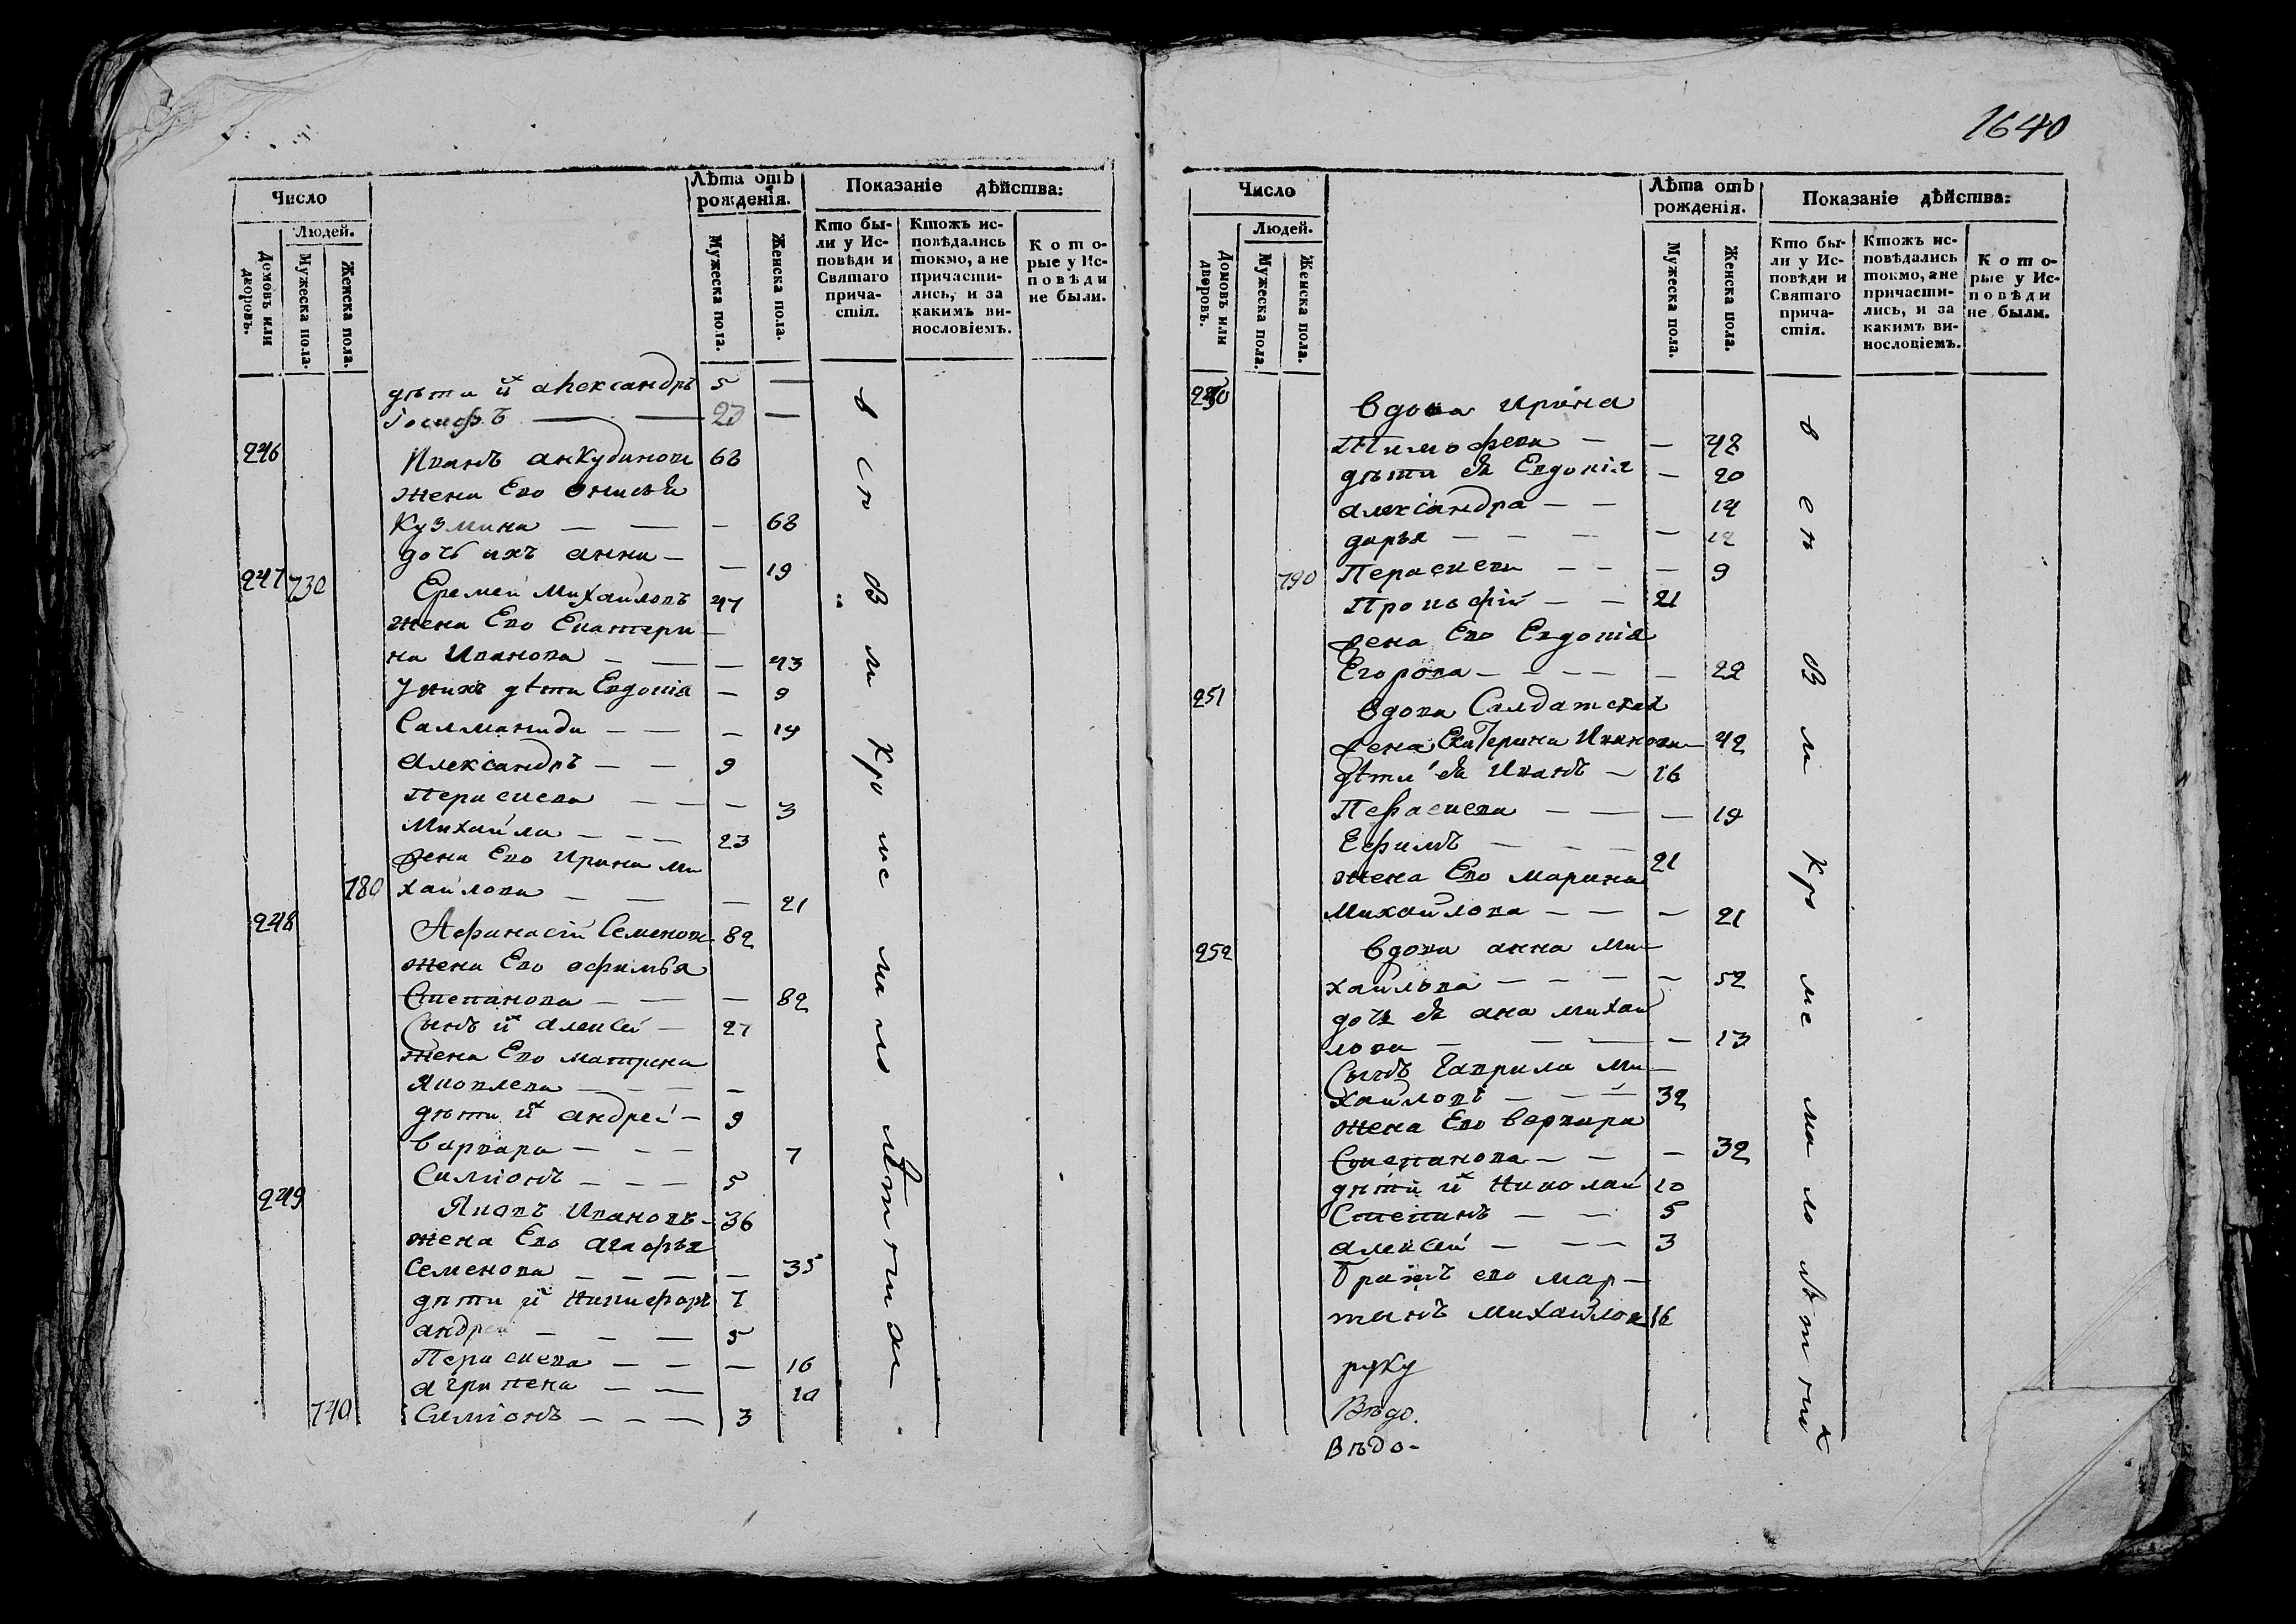 1640
Число
Лѣта отъ рожденія.
Показаніе дѣйства:
Домовъ или дворовъ.
Людей.
Мужеска пола.
Женска пола.
Мужеска пола.
Женска пола.
Кто бы-
ли у Ис-
повѣди и
Святаго
прича-
стія.
Ктожъ ис-
повѣдались
токмо, а не
причасти-
лись, и за
какимъ ви-
нословіемъ.
Кото-
рые у Ис-
повѣди
не были.
дѣти их Александръ 5 —
Іосифъ — — 20 —
246 Иванъ Анкудиновъ 68
жена Ево Онисья
Кузмина — — — 68
дочь ихъ анна — — 19
247 730 Еремей Михайловъ 47
жена Ево Екатери —
на Иванова — — — 43
У нихъ дѣти Евдокія — 9
Саламанида — — — 14
Александръ — — 9
Параскева — — — 3
Михайла — — — 23
жена Ево Ирина Ми
780 хайлова — — — 21
248 Афанасій Семеновъ 82
жена Ево офимья
Степанова — — — 82
Сынъ их алексѣй — 27
жена Ево матрена
Яковлева — — — —
дѣти их андрей — 9
варвара — — — 7
Симіонъ — — — 5
249 Яковъ Ивановъ — 36
жена Ево агафья
Семенова — — — — 35
дѣти их Никифоръ 7
андрей — — — 5
Параскева — — — 16
агрипена — — 10
740 Симіонъ — — — 3
в с ѣ В ли кро ме мало лѣтнихъ
Число
Лѣта отъ рожденія.
Показаніе дѣйства:
Домовъ или дворовъ.
Людей.
Мужеска пола.
Женска пола.
Мужеска пола.
Женска пола.
Кто бы-
ли у Ис-
повѣди и
Святаго
прича-
стія.
Ктожъ ис-
повѣдались
токмо, а не
причасти-
лись, и за
какимъ ви-
нословіемъ.
Кото-
рые у Ис-
повѣди
не были.
250 вдова Ирина
Тимофева — — 48
дѣти еѣ Евдокія — 20
александра — — 14
дарья — — — — 12
790 Параскева — — — 9
Прокофій — — 21
жена Ево Евдокія
Егорова — — — — — 22
251 вдова Салдатская
жена Екатерина Иванова — 42
дѣти еѣ Иванъ — 16
Параскева — — — 19
Ефимъ — — — 21
жена Ево марина
Михайлова — — — 21
252 вдова анна Ми —
хайлова — — — — — 52
дочь еѣ ана михай
лова — — — — 13
Сынъ Гаврила Ми —
хайловъ — — — 32
жена Ево варвара
Степанова — — — 32
дѣти их Николай 10
Степанъ — — 5
алексѣй — — — 3
братъ ево мар —
тынъ михайлов 16
руку
Вѣдо.
Вѣдо-